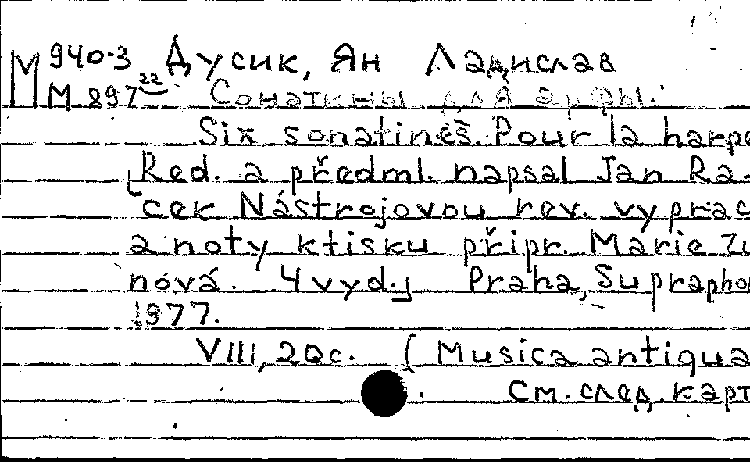 М 940-3 Дусик, Ян Ладислав
М 897 22 Сонатины для арфы.
Six sonatines. Pour la harpe
[Red. a předml. napsal Jan Ra-
cek Nástrojovou rev. vyprac
a noty k tisku připr. Marie Zu
nová. 4 vyd.] Praha, Supraphon
1977.
VIII, 20 с. (Musica antiqua
См. след. карт